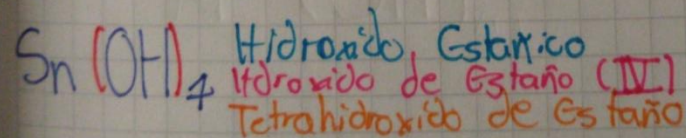 Sn(OH)4 Hidroxido Estanico
Hidroxido de Estaño (IV)
Tetrahidroxido de Estaño